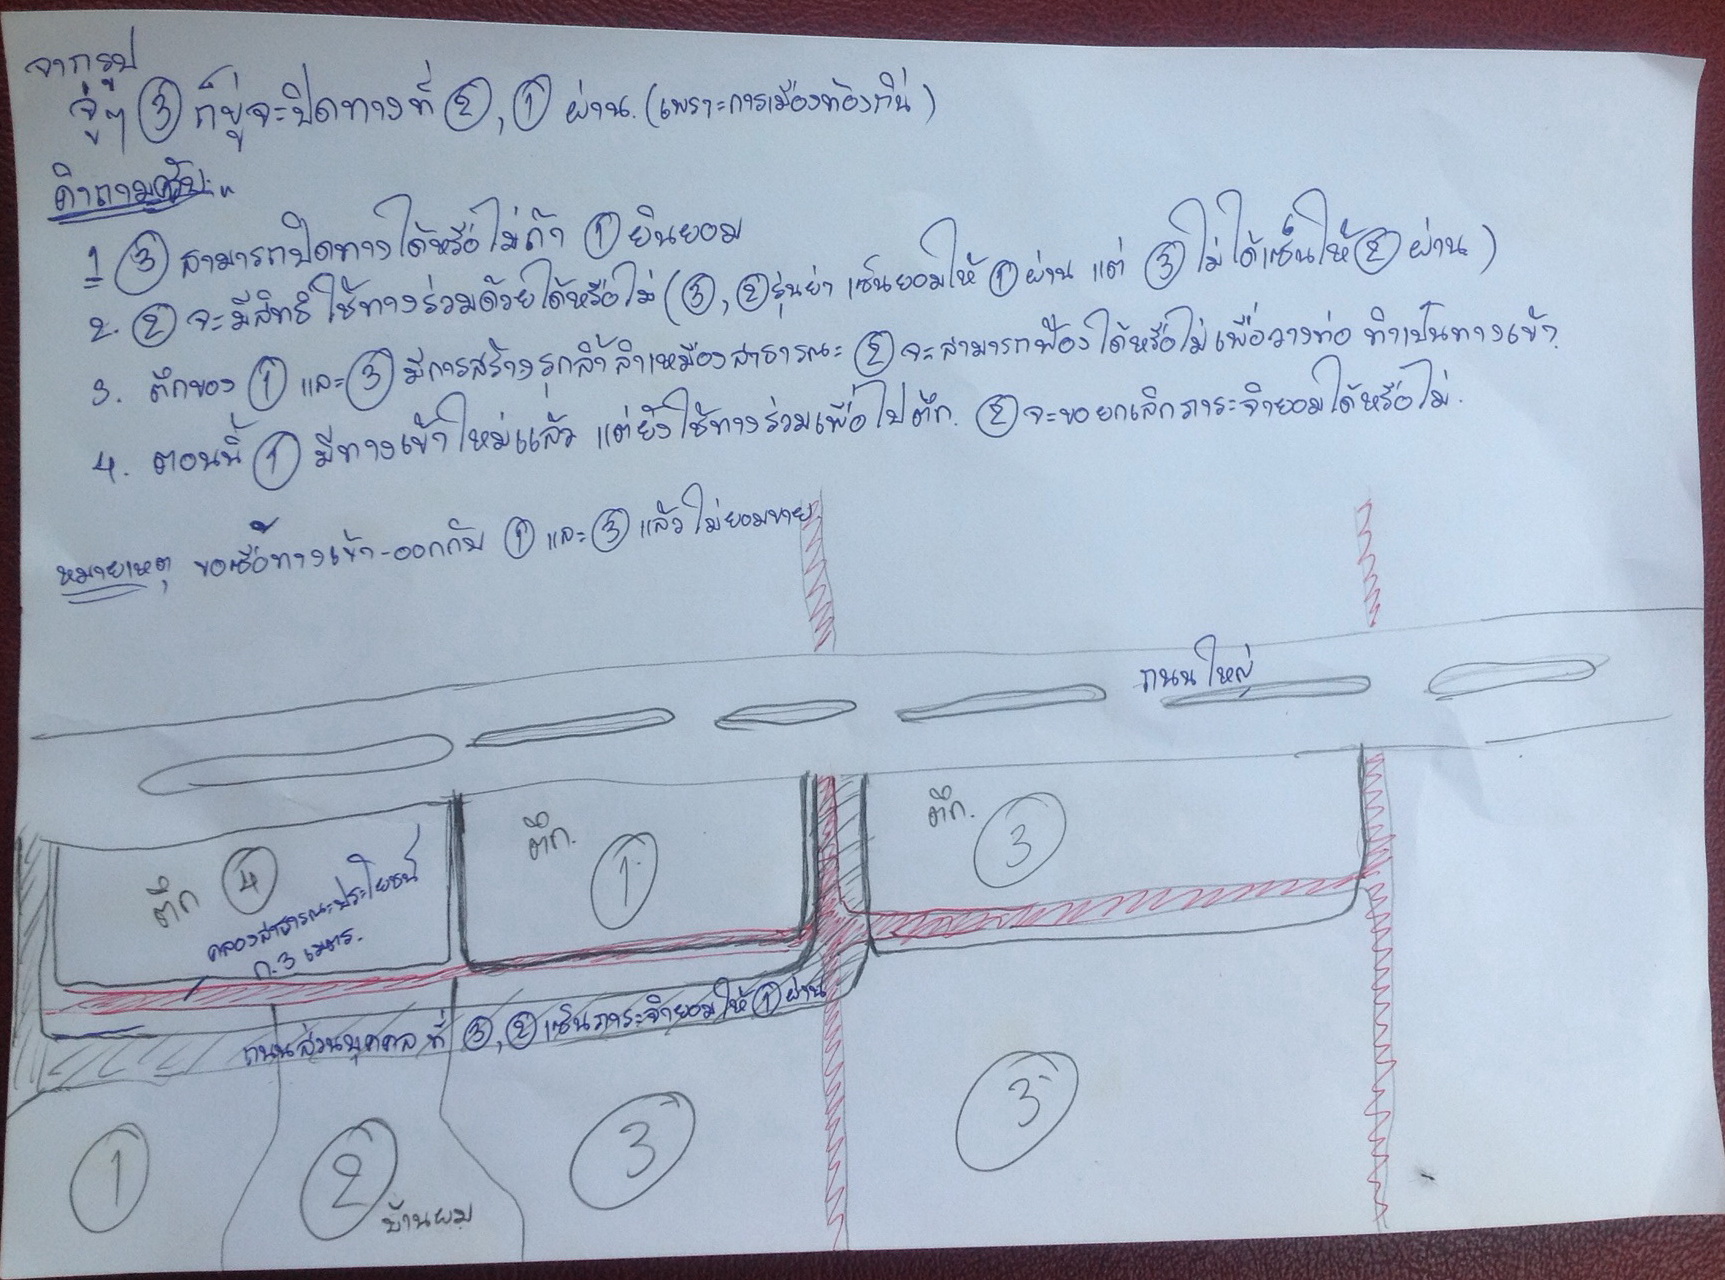 จากรูป
จู่ๆ ③ ก็ขู่จะปิดทางที่ ②, ① ผ่าน. (เพราะการเมืองท้องถิ่น)
คำถามครับ..
1 ③ สามารถปิดทางได้หรือไม่ถ้า ① ยินยอม
2. ② จะมีสิทธิ์ใช้ทางร่วมด้วยได้หรือไม่ (③, ② รุ่นย่า เซ็นยอมให้ ① ผ่าน แต่ ③ ไม่ได้เซ็นให้ ② ผ่าน)
3. ตึกของ ① และ ③ มีการสร้างรุกล้ำลำเหมืองสาธารณะ ② จะสามารถฟ้องได้หรือไม่เพื่อวางท่อ ทำเป็นทางเข้า.
4. ตอนนี้ ① มีทางเข้าใหม่แล้ว แต่ยังใช้ทางร่วมเพื่อไปตึก. ② จะขอยกเลิกภาระจำยอมได้หรือไม่.
หมายเหตุ ขอซื้อทางเข้า-ออกกับ ① และ ③ แล้วไม่ยอมขาย
ถนนใหญ่
ตึก ④
คลองสาธารณะประโยชน์
ก. 3 เมตร.
ตึก. ①
ตึก. ③
ถนนส่วนบุคคล ที่ ③, ② เซ็นภาระจำยอมให้ ① ผ่าน
① ② บ้านผม ③ ③